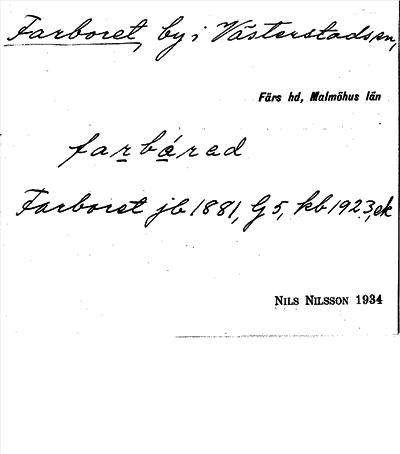 Farboret, by i Västerstads sn,
Färs hd, Malmöhus län
farbåred
Farboret jb 1881, G5, kb 1923, ek
NILS NILSSON 1934